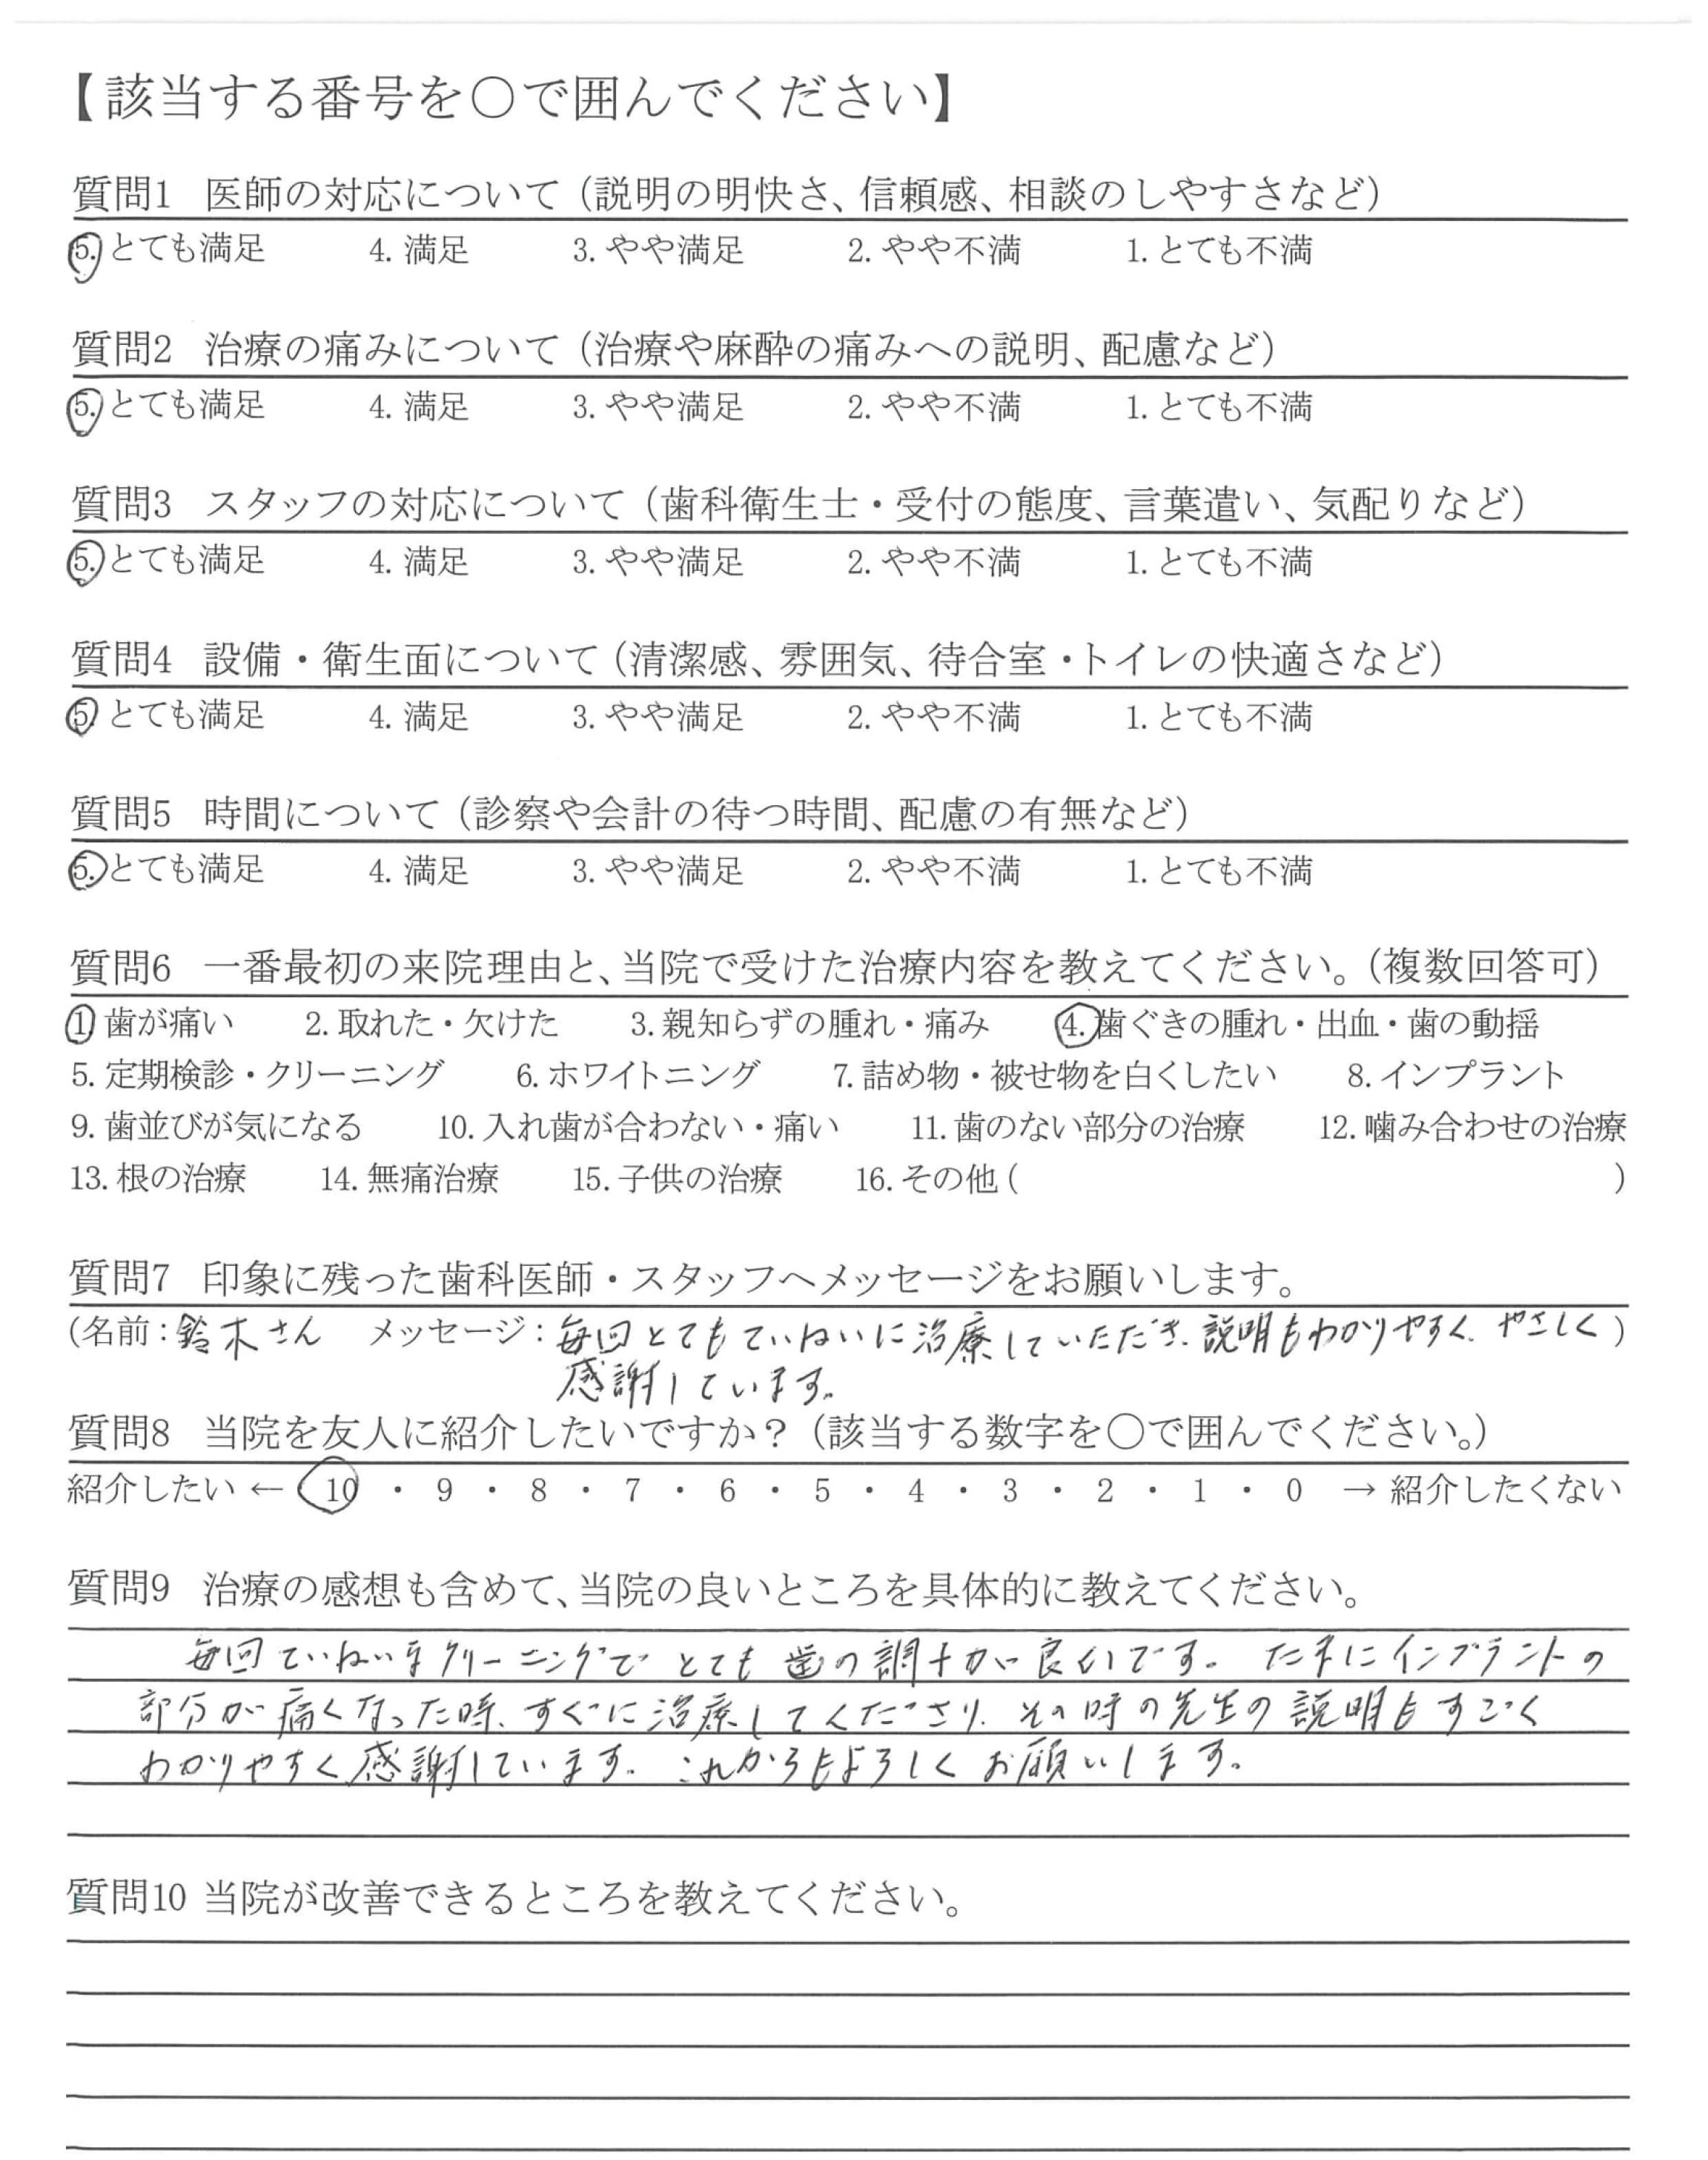 【該当する番号を〇で囲んでください】
質問1 医師の対応について（説明の明快さ、信頼感、相談のしやすさなど）
5. とても満足 4. 満足 3. やや満足 2. やや不満 1. とても不満
質問2 治療の痛みについて（治療や麻酔の痛みへの説明、配慮など）
5. とても満足 4. 満足 3. やや満足 2. やや不満 1. とても不満
質問3 スタッフの対応について（歯科衛生士・受付の態度、言葉遣い、気配りなど）
5. とても満足 4. 満足 3. やや満足 2. やや不満 1. とても不満
質問4 設備・衛生面について（清潔感、雰囲気、待合室・トイレの快適さなど）
5. とても満足 4. 満足 3. やや満足 2. やや不満 1. とても不満
質問5 時間について（診察や会計の待つ時間、配慮の有無など）
5. とても満足 4. 満足 3. やや満足 2. やや不満 1. とても不満
質問6 一番最初の来院理由と、当院で受けた治療内容を教えてください。（複数回答可）
1. 歯が痛い 2. 取れた・欠けた 3. 親知らずの腫れ・痛み 4. 歯ぐきの腫れ・出血・歯の動揺
5. 定期検診・クリーニング 6. ホワイトニング 7. 詰め物・被せ物を白くしたい 8. インプラント
9. 歯並びが気になる 10. 入れ歯が合わない・痛い 11. 歯のない部分の治療 12. 噛み合わせの治療
13. 根の治療 14. 無痛治療 15. 子供の治療 16. その他（ ）
質問7 印象に残った歯科医師・スタッフへメッセージをお願いします。
（名前：鈴木さん メッセージ：毎回とてもていねいに治療していただき、説明もわかりやすく、やさしく）
感謝しています。
質問8 当院を友人に紹介したいですか？（該当する数字を〇で囲んでください。）
紹介したい ← 10 ・ 9 ・ 8 ・ 7 ・ 6 ・ 5 ・ 4 ・ 3 ・ 2 ・ 1 ・ 0 → 紹介したくない
質問9 治療の感想も含めて、当院の良いところを具体的に教えてください。
毎回ていねいなクリーニングで とても 歯の調子が良いです。 たまにインプラントの
部分が痛くなった時、すぐに治療してくださり、その時の先生の説明もすごく
わかりやすく感謝しています。これからもよろしくお願いします。
質問10 当院が改善できるところを教えてください。